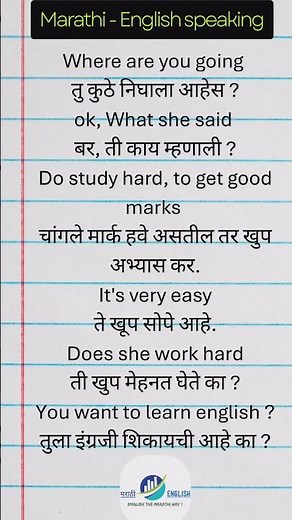 Marathi - English speaking
Where are you going
तु कुठे निघाला आहेस ?
ok, What she said
बर, ती काय म्हणाली ?
Do study hard, to get good
marks
चांगले मार्क हवे असतील तर खुप
अभ्यास कर.
It's very easy
ते खूप सोपे आहे.
Does she work hard
ती खुप मेहनत घेते का ?
You want to learn english ?
तुला इंग्रजी शिकायची आहे का ?
मराठी ENGLISH
ENGLISH THE MARATHI WAY !